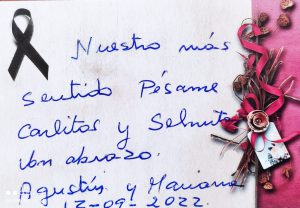 Nuestro más
sentido Pésame
Carlitos y Selmita
Un abrazo.
Agustín y Mariana
12-09-2022.